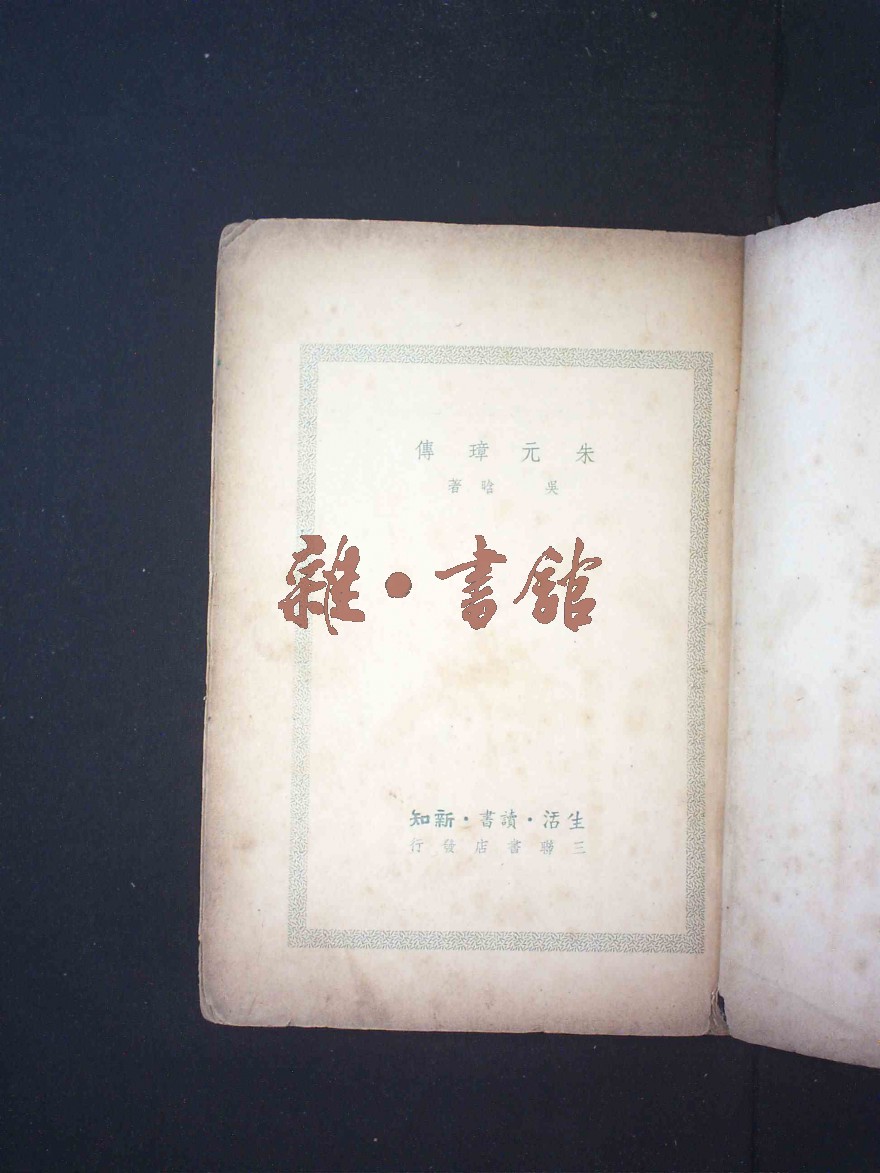 朱元璋傳
吳晗著
雜•書館
生活•讀書•新知
三聯書店發行